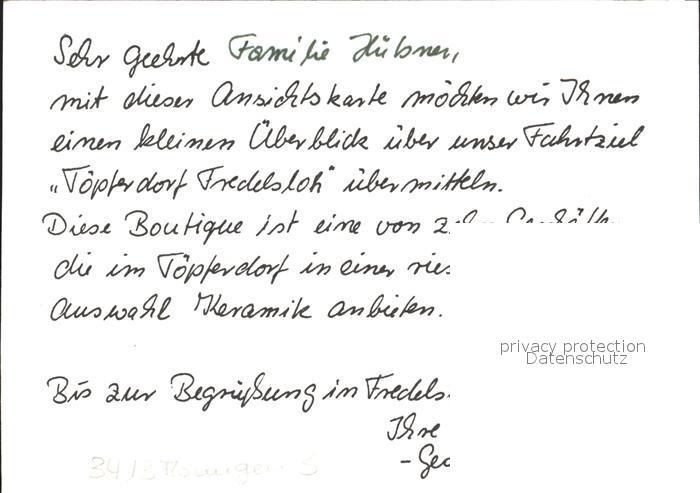 Sehr geehrte Familie Hübner,
mit dieser Ansichtskarte möchten wir Ihnen
einen kleinen Überblick über unser Fahrtziel
„Töpferdorf Fredelsloh" übermitteln.
Diese Boutique ist eine von
die im Töpferdorf in einer
Auswahl Keramik anbieten.
privacy protection
Datenschutz
Bis zur Begrüßung in Fredels
Ihre
-Geo
34